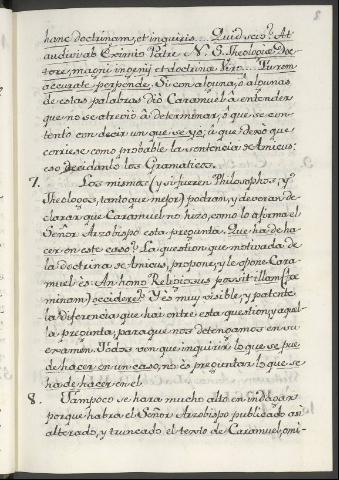 hanc doctrinam, et inquiris... Quid scio? At
audivi ab Eximio Patre N. S. Theologiæ Doc-
tore, magni ingenij et doctrinæ Viro... Tu rem
accurate perpende. Si con alguna, ò algunas
de estas palabras diò Caramuel à entender
que no se atreviò à determinar, o que se con-
tentò con decir un que se yo; ù que dexò que
corriese como probable la sentencia de Amicus:
eso decidanlo los Gramaticos.
7. Los mismos (y si fueren Philosophos, y
Theologos, tanto que mejor) podran, y deveran de-
clarar que Caramuel no hizo, como lo afirma el
Señor Arzobispo esta pregunta. Que ha de ha-
cer en este caso? La question que motivada de
la doctrina de Amicus, propone, y le opone Cara-
muel es: An homo Religiosus possit illam (fæ
minam) occidere? Y es muy visible, y patente
la diferencia que hai entre esta question, y aque-
lla pregunta, para que nos detengamos en su
examen. Todos ven que inquirir lo que se pue-
de hacer en un caso, no es preguntar lo que se
ha de hacer en el.
8. Tampoco se hara mucho alto en indagar
porque habra el Señor Arzobispo publicado an
alterado, y truncado el texto de Caramuel, omi-